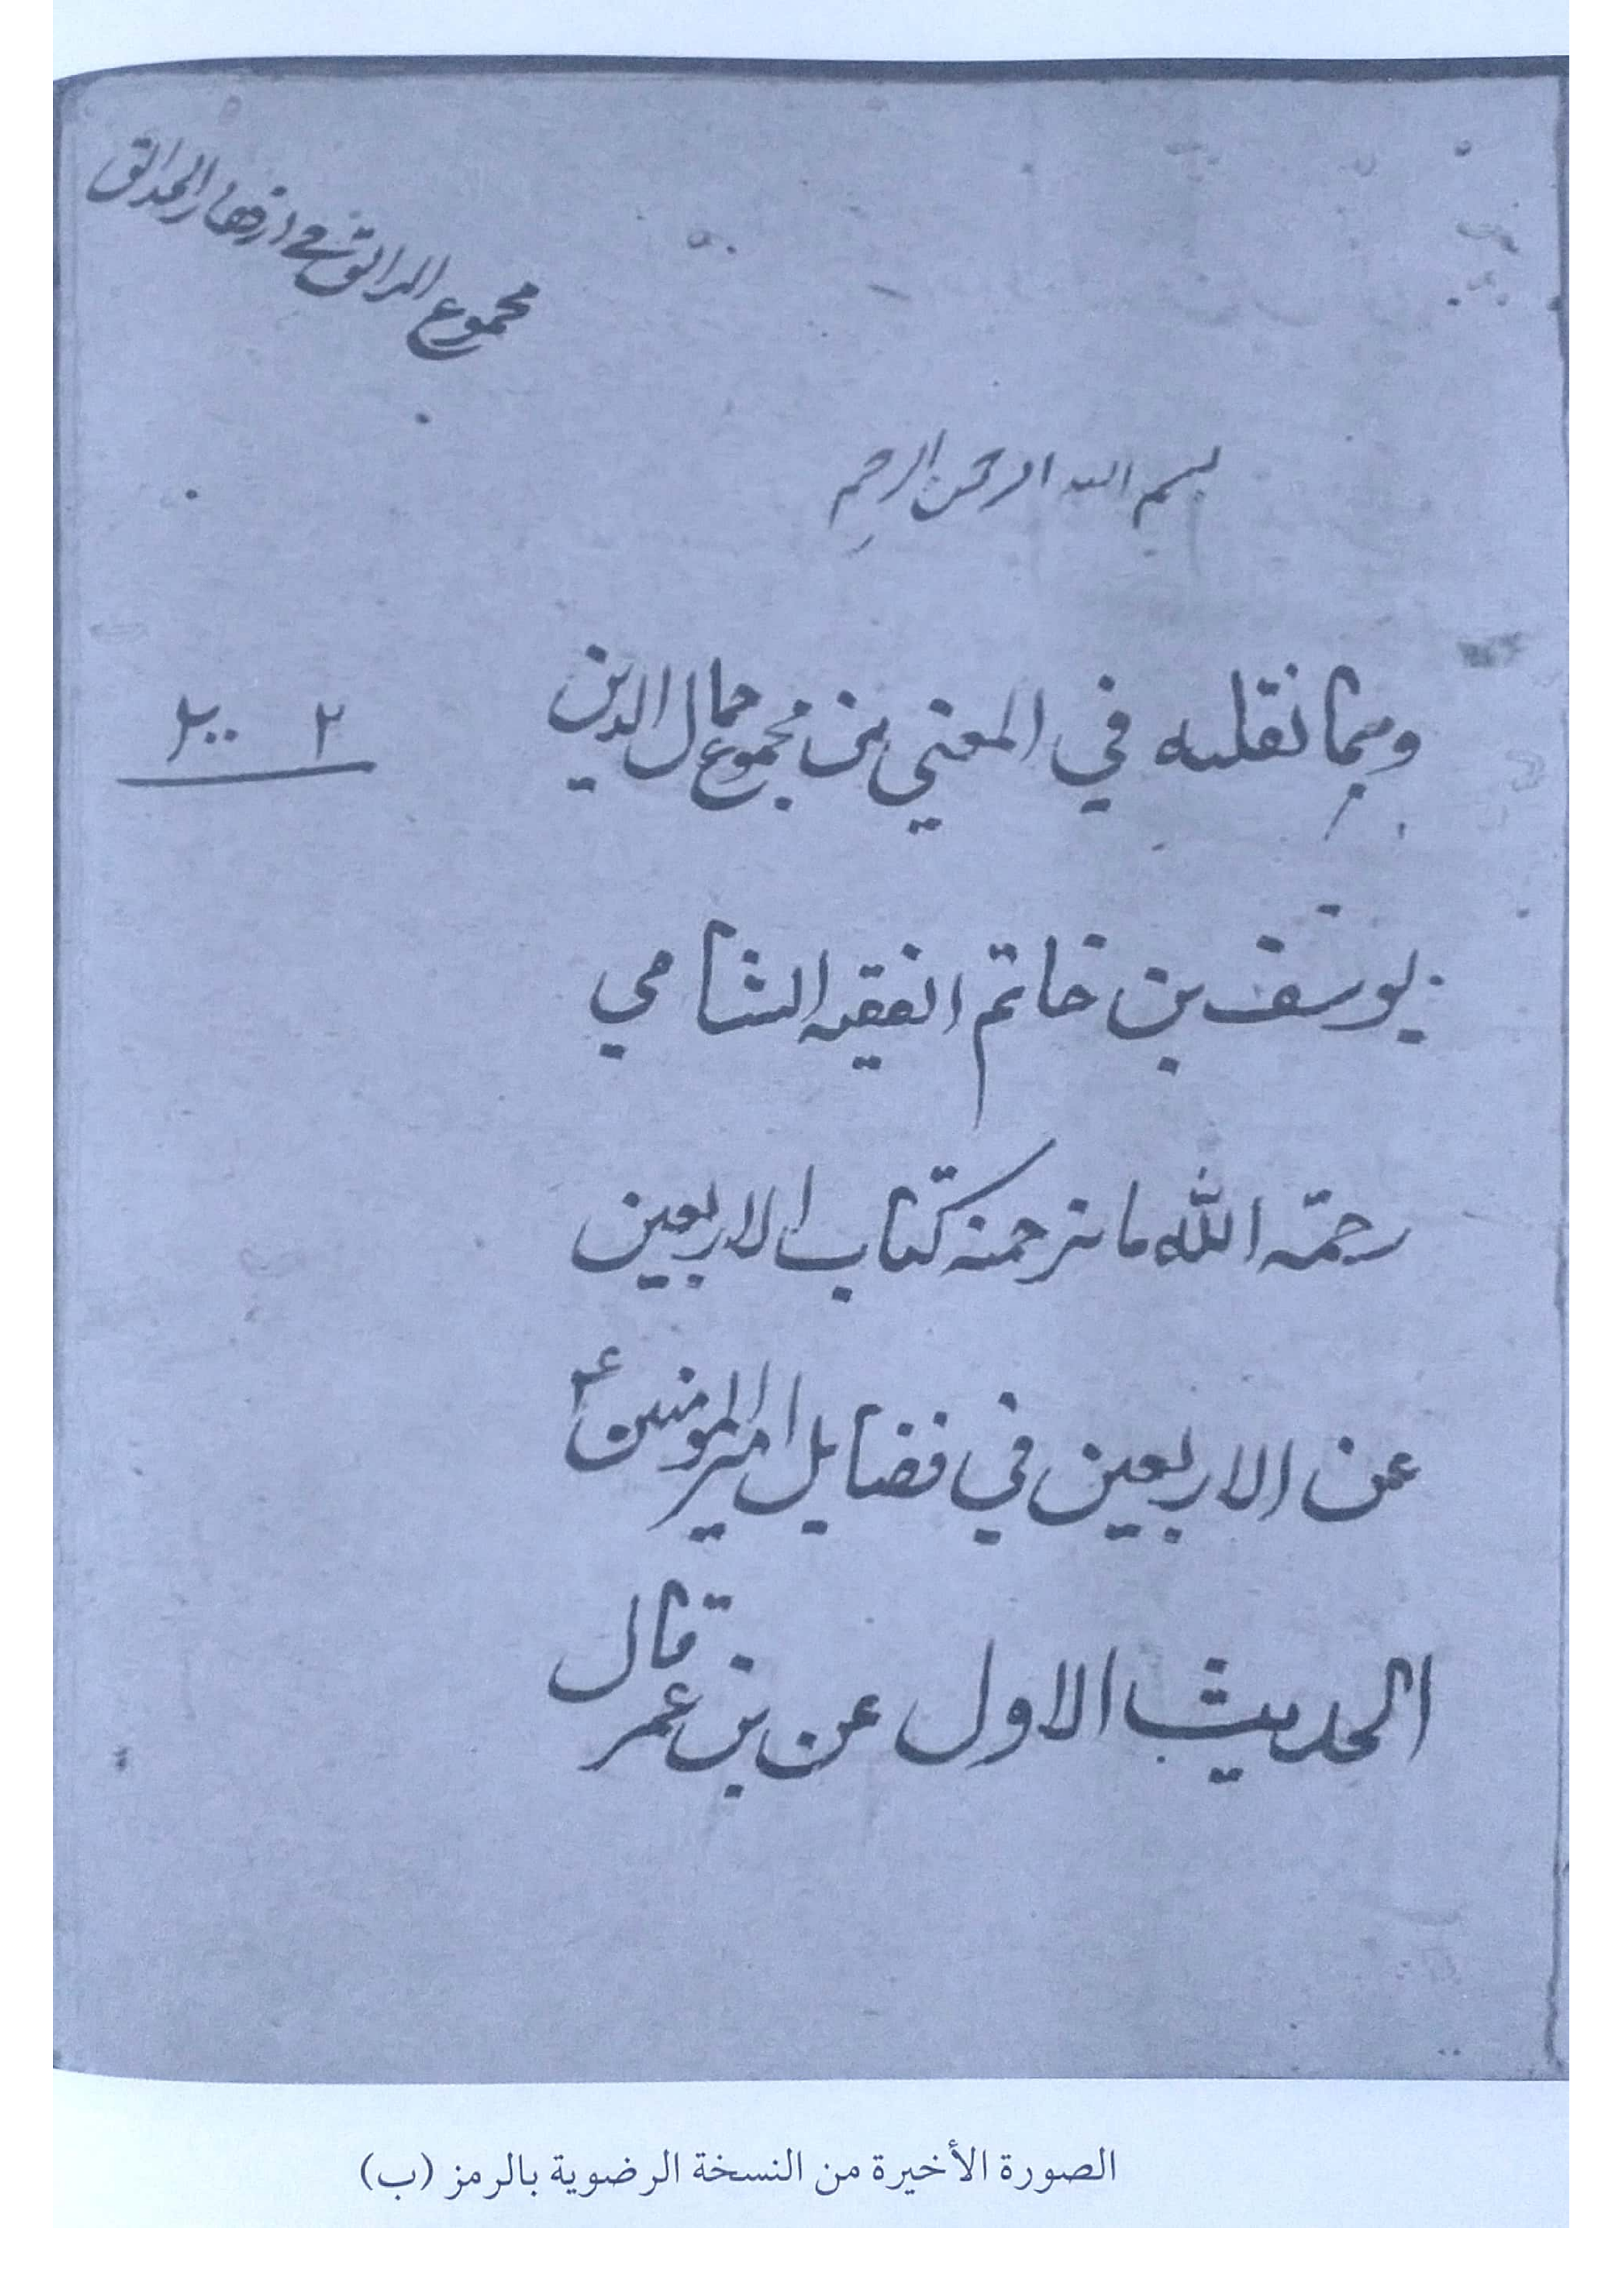 مجموع الرائق في ازهار الحدائق
بسم الله الرحمن الرحيم
ومما نقلته في المعني من مجموع جمال الدين
٢ ٢٠٠
يوسف بن خاتم الفقيه الشامي
رحمة الله ما ترجمته كتاب الاربعين
عن الاربعين في فضايل امير المومنين ع
الحديث الاول عن بن عمر قال
الصورة الأخيرة من النسخة الرضوية بالرمز (ب)